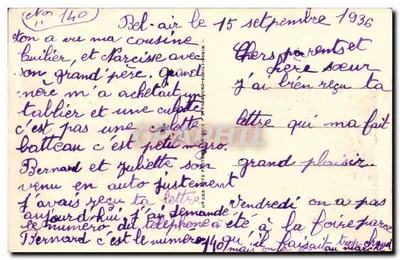 (No 140)
Bel-air le 15 setpembre 1936
Chers parents et
frère sœur
j'ai bien reçu ta
lettre qui ma fait
grand plaisir.
Vendredi on a pas
été à la foire parce
qu'il faisait trop chaud
mais on au marché
on a vu ma cousine
et Narcisse avec
son grand'père. Grand
mère m'a achetait un
tablier et une culotte
c'est pas une culotte
batteau c'est petit negro.
Bernard et Juliette son
venu en auto justement
j'avais reçu ta lettre
aujourd'hui, j'ai demandé
le numéro du téléphone à
Bernard c'est le numéro 140